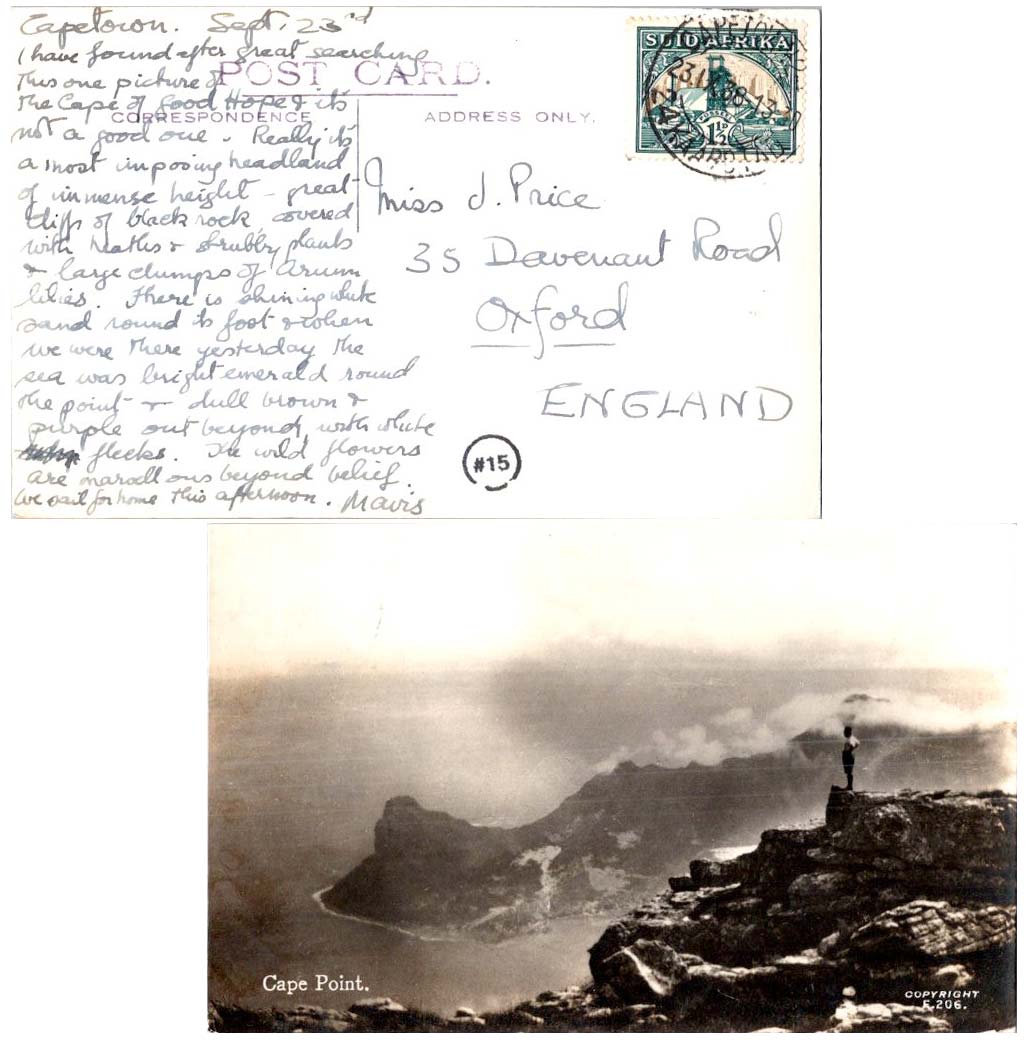 Capetown. Sept. 23rd
I have found after great searching
this one picture of
the Cape of Good Hope & it's
not a good one. Really it's
a most imposing headland
of immense height - great
cliffs of black rock, covered
with heaths & shrubby plants
& large clumps of Arum
lilies. There is shining white
sand round its foot & when
we were there yesterday the
sea was bright emerald round
the point - & dull brown &
purple out beyond, with white
flecks. The wild flowers
are marvellous beyond belief.
We sail for home this afternoon. Mavis
POST CARD.
CORRESPONDENCE
ADDRESS ONLY.
SUIDAFRIKA
POSSEEL
1½D
CAPETOWN
KAAPSTAD
Miss J. Price
35 Davenant Road
Oxford
ENGLAND
#15
Cape Point.
COPYRIGHT
E.206.